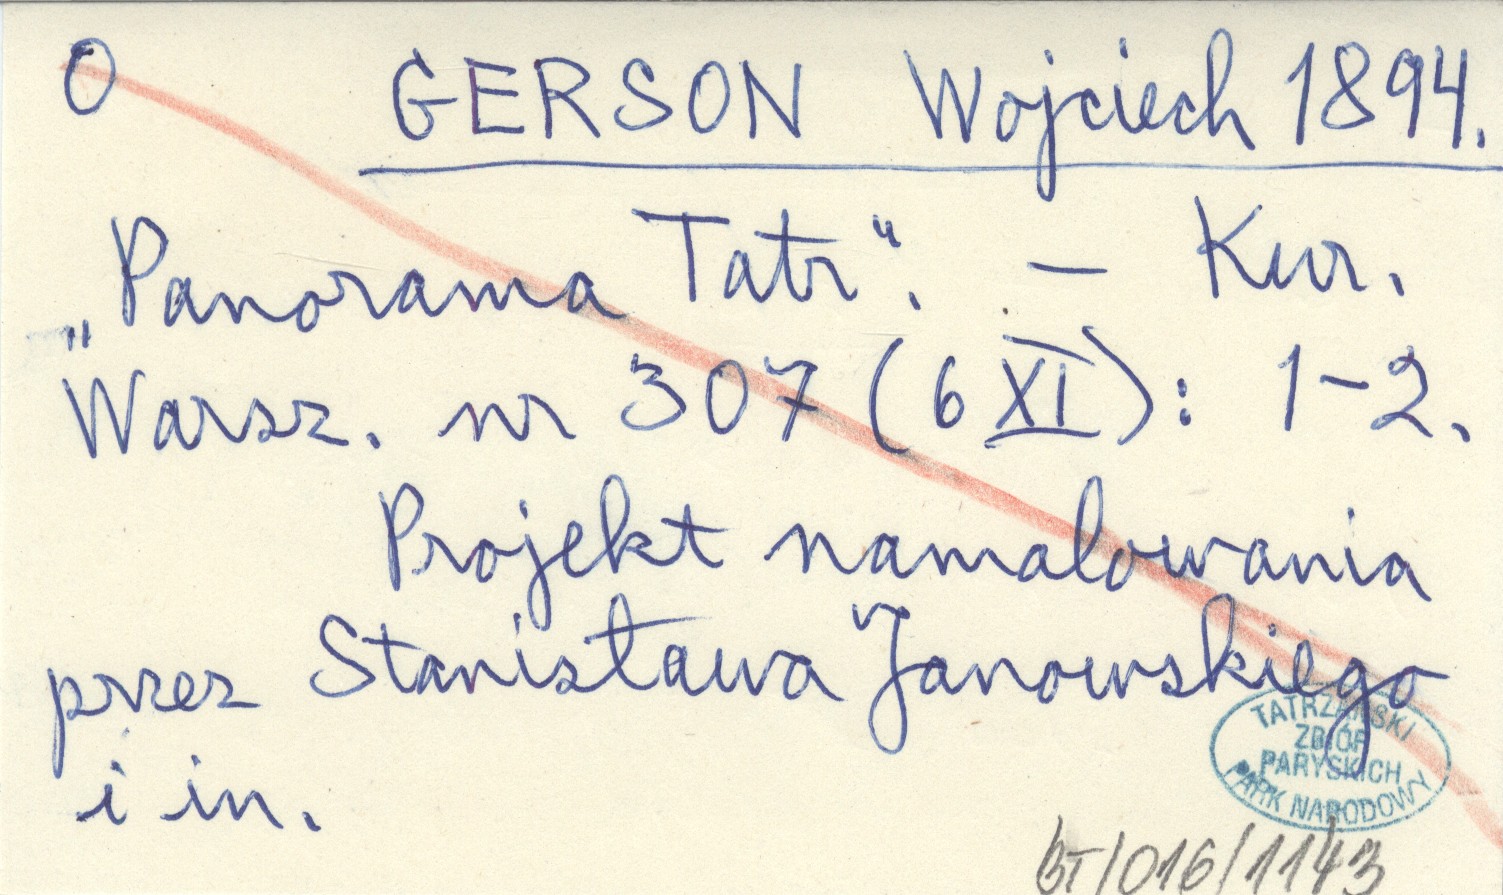 O GERSON Wojciech 1894.
„Panorama Tatr". – Kur.
Warsz. nr 307 (6 XI): 1-2.
Projekt namalowania
przez Stanisława Janowskiego
i in.
TATRZAŃSKI
ZBIÓR
PARYSKICH
PARK NARODOWY
BT/016/1143